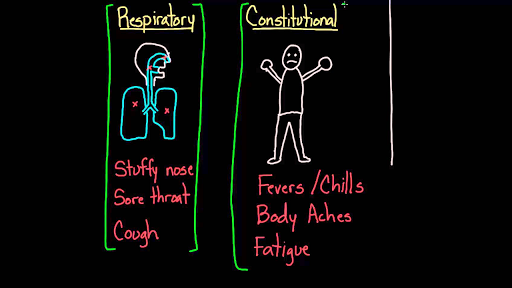 Respiratory
Stuffy nose
Sore throat
Cough
Constitutional
Fevers/Chills
Body Aches
Fatigue